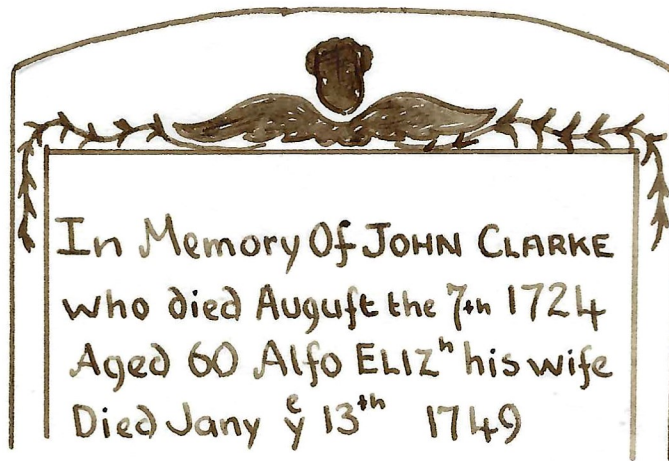 In Memory Of JOHN CLARKE
who died Auguſt the 7th 1724
Aged 60 Alſo ELIZʰ his wife
Died Jany yᵉ 13ᵗʰ 1749